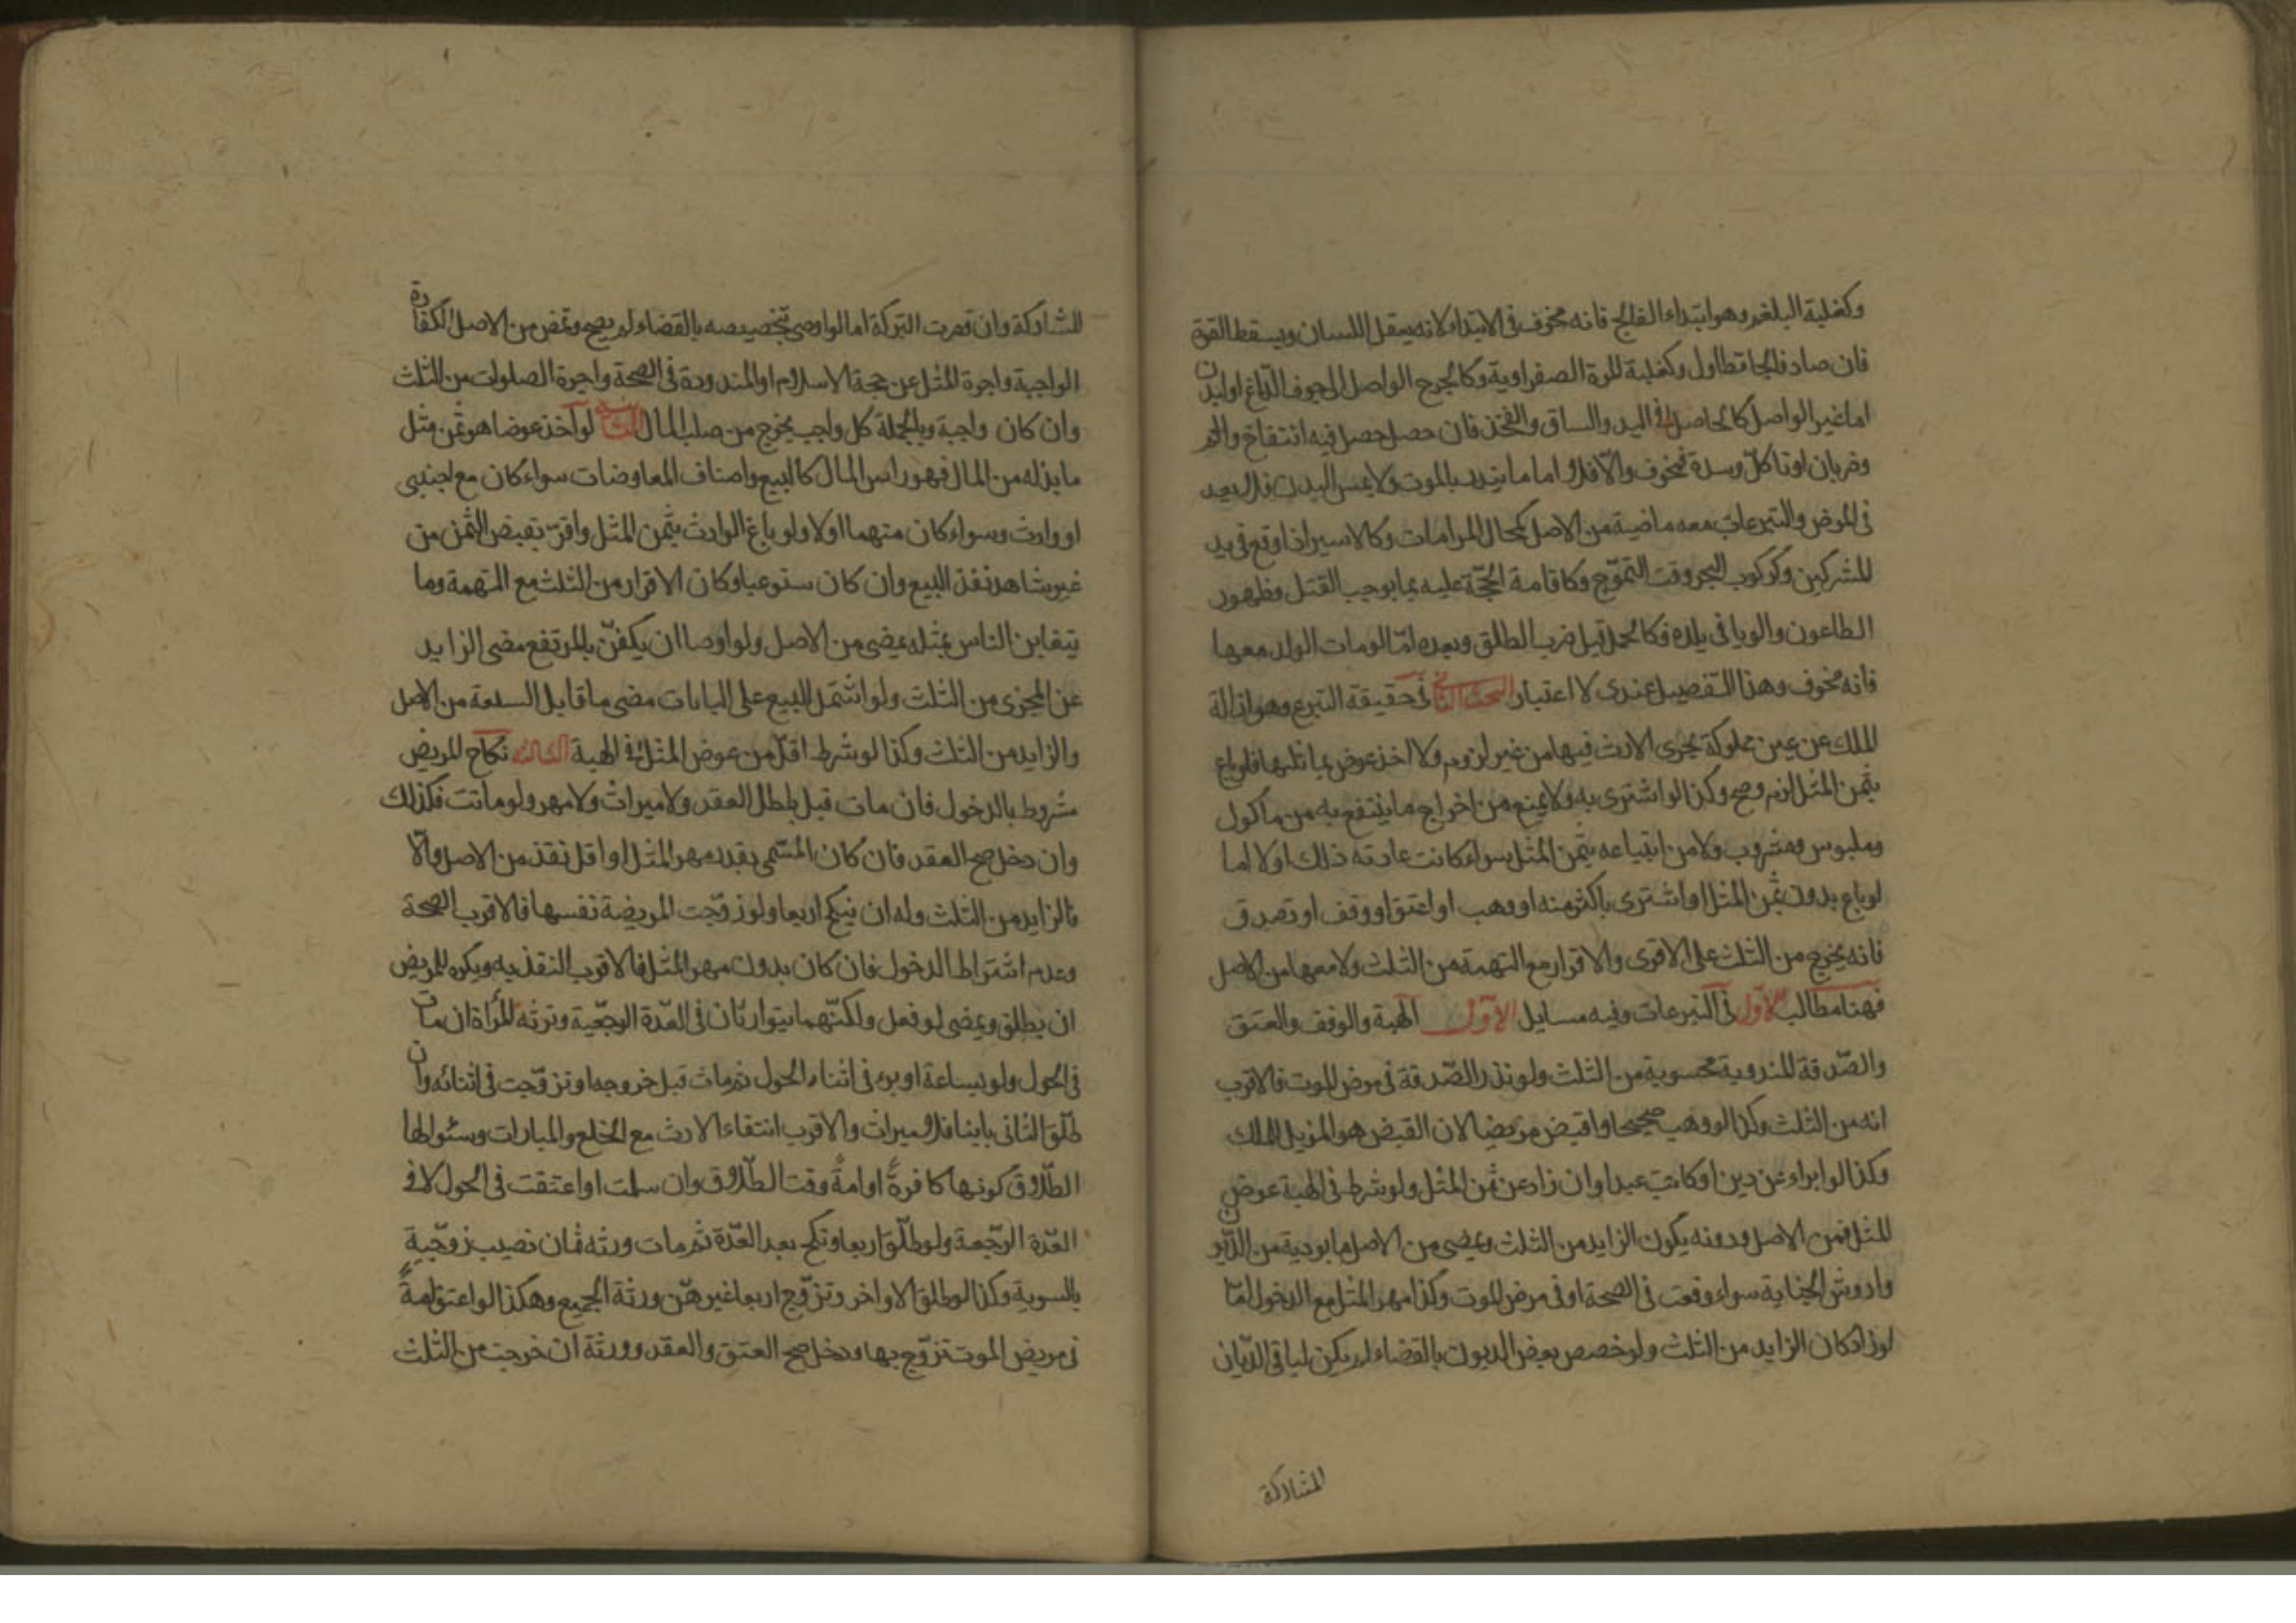 وكغلبة البلغم وهو ابتداء الفالج فانه مخوف في الابتداء لانه يعقل اللسان ويسقط القوة
فان صار فالجا تطاول وكغلبة المرة الصفراوية وكالجرح الواصل الى جوف الدماغ او البدن
اما غير الواصل كالحاصل في اليد والساق والفخذ فان حصل حصل فيه انتفاخ والم
وضربان او تاكل وسدة فمخوف والا فلا واما ما ينذر بالموت ولا يمس البدن فلا يعد
في المرض والتبرعات معه ماضية من الاصل كحال المرامات وكالاسير اذا وقع في يد
المشركين وكركوب البحر وقت التموج وكاقامة الحجة عليه بما يوجب القتل وظهور
الطاعون والوبا في بلده وكالحمل قبل ضرب الطلق وبعده اما لو مات الولد معها
فانه مخوف وهذا التفصيل عندى لا اعتبار البحث الثاني في حقيقة التبرع وهو ازالة
الملك عن عين مملوكة يجرى الارث فيها من غير لزوم ولا اخذ عوض يماثلها فلو باع
بثمن المثل لزم وصح وكذا لو اشترى به ولا يمنع من اخراج ما ينتفع به من ماكول
وملبوس ومشروب ولا من ابتياعه بثمن المثل سواء كانت عادته ذلك او لا اما
لو باع بدون ثمن المثل او اشترى باكثر منه او وهب او اعتق او وقف او تصدق
فانه يخرج من الثلث على الاقرى والاقرار مع التهمة من الثلث ولا معها من الاصل
فهنا مطالب الاول في التبرعات وفيه مسايل الاول الهبة والوقف والعتق
والصدقة المندوبة محسوبة من الثلث ولو نذر الصدقة في مرض الموت فالاقرب
انه من الثلث وكذا لو وهب صحيحا واقبض مريضا لان القبض هو المزيل للملك
وكذا لو ابراء عن دين او كاتب عبدا وان زاد عن ثمن المثل ولو شرط في الهبة عوض
المثل فمن الاصل ودونه يكون الزايد من الثلث ويمضى من الاصل ما يوديه من الديون
واروش الجناية سواء وقعت في الصحة او في مرض الموت وكذا مهر المثل مع الدخول اما
لو زاد كان الزايد من الثلث ولو خصص بعض الديون بالقضاء لم يكن لباقى الديان
المشاركة
المشاركة وان قصرت التركة اما لو اوصى بتخصيصه بالقضاء لم يصح وتمض من الاصل الكفارة
الواجبة واجرة المثل عن حجة الاسلام او المنذورة في الصحة واجرة الصلوات من الثلث
وان كان واجبة وبالجملة كل واجب يخرج من صلب المال الثانية لو اخذ عوضا هو ثمن مثل
ما بذله من المال فهو راس المال كالبيع واصناف المعاوضات سواء كان مع اجنبي
او وارث وسواء كان متهما او لا ولو باع الوارث بثمن المثل واقر بقبض الثمن من
غير مشاهد نفذ البيع وان كان ستوعبا وكان الاقرار من الثلث مع التهمة وما
يتغابن الناس بمثله يمضى من الاصل ولو اوصا ان يكفن بالمرتفع مضى الزايد
عن المجزى من الثلث ولو اشتمل البيع على المابات مضى ما قابل السلعة من الاصل
والزايد من الثلث وكذا لو شرط اقل من عوض المثل في الهبة الثالثة نكاح المريض
مشروط بالدخول فان مات قبل بطل العقد ولا ميراث ولا مهر ولو ماتت فكذلك
وان دخل صح العقد فان كان المسمى بقدر مهر المثل او اقل نفذ من الاصل والا
فالزايد من الثلث وله ان ينكح اربعا ولو زوجت المريضة نفسها فالاقرب الصحة
وعدم اشتراط الدخول فان كان بدون مهر المثل فالاقرب النفذ به ويكره للمريض
ان يطلق ويمضى لو فعل ولكنهما يتوارثان في العدة الرجعية وترثه المراة ان مات
في الحول ولو بساعة او برء في اثناء الحول ثم مات قبل خروجه او تزوجت في اثنائه وان
طلق الثاني باينا فلا ميراث والاقرب انتفاء الارث مع الخلع والمبارات وسئوالها
الطلاق كونها كافرة او امة وقت الطلاق وان سلمت او اعتقت في الحول لا في
العدة الرجعة ولو طلق اربعا ونكح بعد العدة ثم مات ورثه ثمان نصيب زوجية
بالسوية وكذا لو طلق الاواخر وتزوج اربعا غيرهن ورثة الجميع وهكذا لو اعتق امة
في مريض الموت تزوج بها ودخل صح العتق والعقد وورثة ان خرجت من الثلث